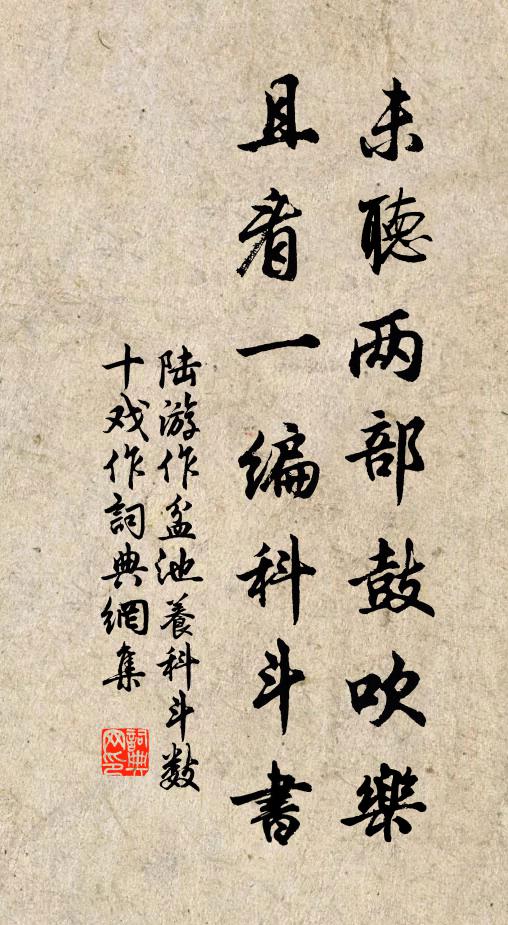 未聽两部鼓吹樂
且看一编科斗書
陆游作盆池養科斗数
十戏作詞典網集
詞典网印